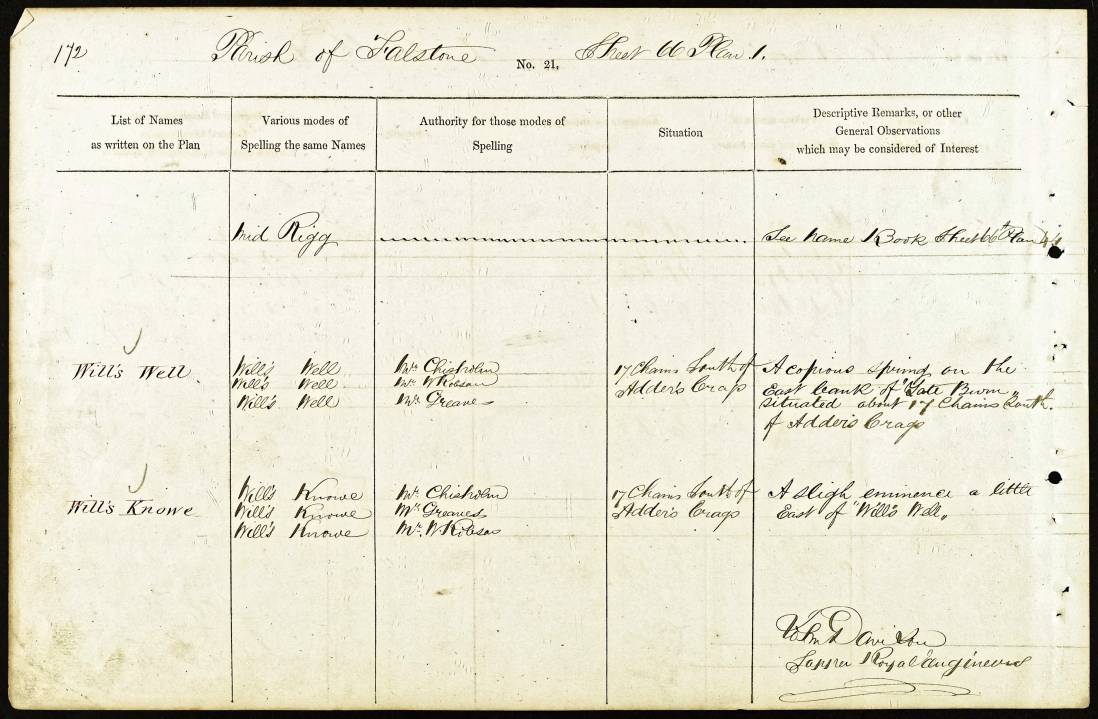 172
Parish of Falstone No. 21, Sheet 66 Plan 1.
List of Names
as written on the Plan
Various modes of
Spelling the same Names
Authority for those modes of
Spelling
Situation
Descriptive Remarks, or other
General Observations
which may be considered of Interest
Mid Rigg See Name Book Sheet 66 Plan
Will's Well
Will's Well
Will's Well
Will's Well
Mr. Chisholm
Mr. W Robson
Mr. Greaves
17 Chains South of
Adder's Crags
A copious spring on the
East bank of "Gate Burn„
situated about 17 Chains South.
of Adder's Crags
Will's Knowe
Will's Knowe
Will's Knowe
Will's Knowe
Mr. Chisholm
Mr. Greaves
Mr. W Robson
17 Chains South of
Adder's Crags
A sligh eminence a little
East of "Will's Well„
John Davidson
Sapper Royal Engineers